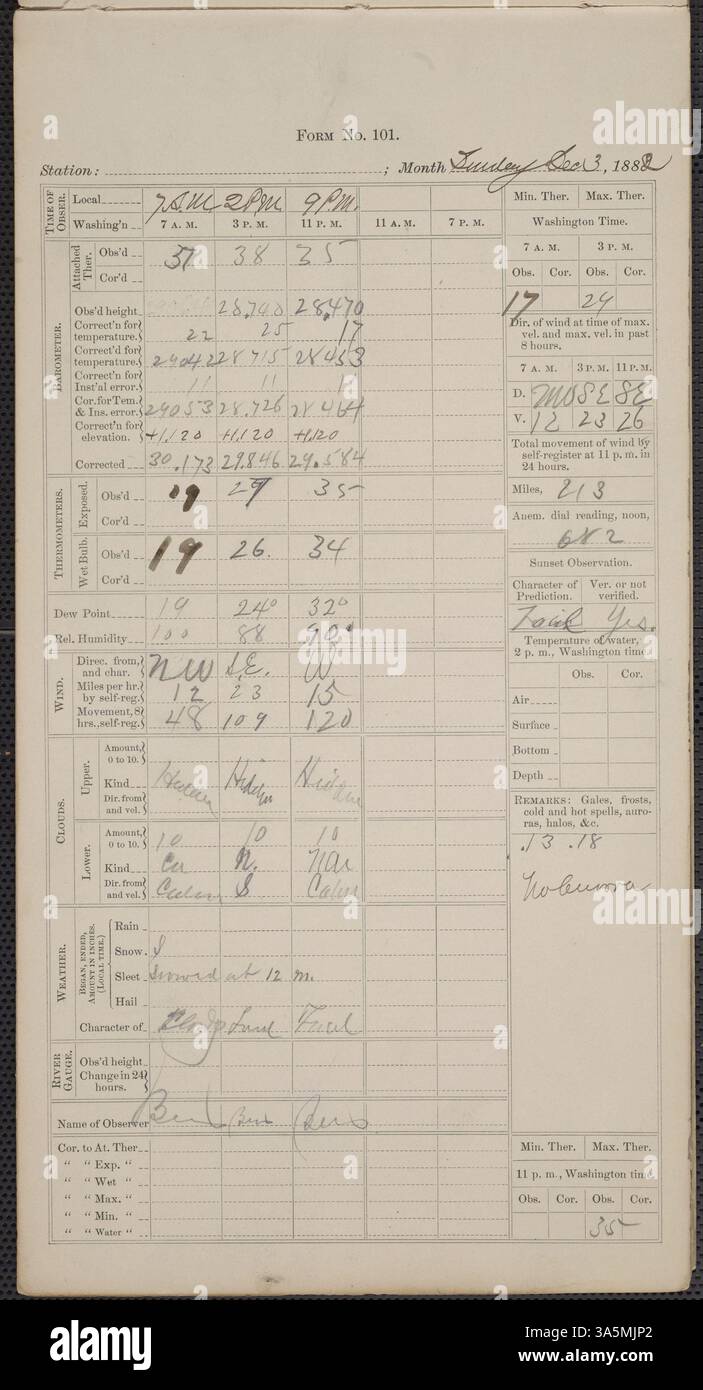 FORM No. 101.
Station: ; Month Sunday Dec 3, 1882
TIME OF OBSER.
Local 7 A.M 2 P.M 9 P.M.
Washing'n 7 A. M. 3 P. M. 11 P. M. 11 A. M. 7 P. M.
BAROMETER.
Attached Ther.
Obs'd 37 38 35
Cor'd
Obs'd height 28,740 28,470
Correct'n for temperature. 22 25 17
Correct'd for temperature. 29042 28715 28453
Correct'n for Inst'al error. 11 11 11
Cor. for Tem. & Ins. error. 29053 28.726 28464
Correct'n for elevation. +1,120 +1,120 +1,120
Corrected 30.173 29.846 29.584
THERMOMETERS.
Exposed.
Obs'd 19 27 35
Cor'd
Wet Bulb.
Obs'd 19 26. 34
Cor'd
Dew Point 19 24° 32°
Rel. Humidity 100 88 90
WIND.
Direc. from, and char. NW S.E. W.
Miles per hr. by self-reg. 12 23 15
Movement, 8 hrs., self-reg. 48 109 120
CLOUDS.
Upper.
Amount, 0 to 10.
Kind Hidden Hidden Hidden
Dir. from and vel.
Lower.
Amount, 0 to 10. 10 10 10
Kind Cu N.
Dir. from and vel. Calm S Calm
WEATHER.
BEGAN, ENDED, AMOUNT IN INCHES. (LOCAL TIME.)
Rain
Snow. S
Sleet Snowed at 12 m.
Hail
Character of Cloudy
RIVER GAUGE.
Obs'd height
Change in 24 hours.
Name of Observer
Cor. to At. Ther
" " Exp. "
" " Wet "
" " Max. "
" " Min. "
" " Water "
Min. Ther. Max. Ther.
Washington Time.
7 A. M. 3 P. M.
Obs. Cor. Obs. Cor.
17 29
Dir. of wind at time of max. vel. and max. vel. in past 8 hours.
7 A. M. 3 P. M. 11 P. M.
D. NW SE SE
V. 12 23 26
Total movement of wind by self-register at 11 p. m. in 24 hours.
Miles, 213
Anem. dial reading, noon,
682
Sunset Observation.
Character of Prediction. Ver. or not verified.
Yes.
Temperature of water, 2 p. m., Washington time.
Obs. Cor.
Air
Surface
Bottom
Depth
REMARKS: Gales, frosts, cold and hot spells, auroras, halos, &c.
.13 .18
No aurora
Min. Ther. Max. Ther.
11 p. m., Washington time.
Obs. Cor. Obs. Cor.
35